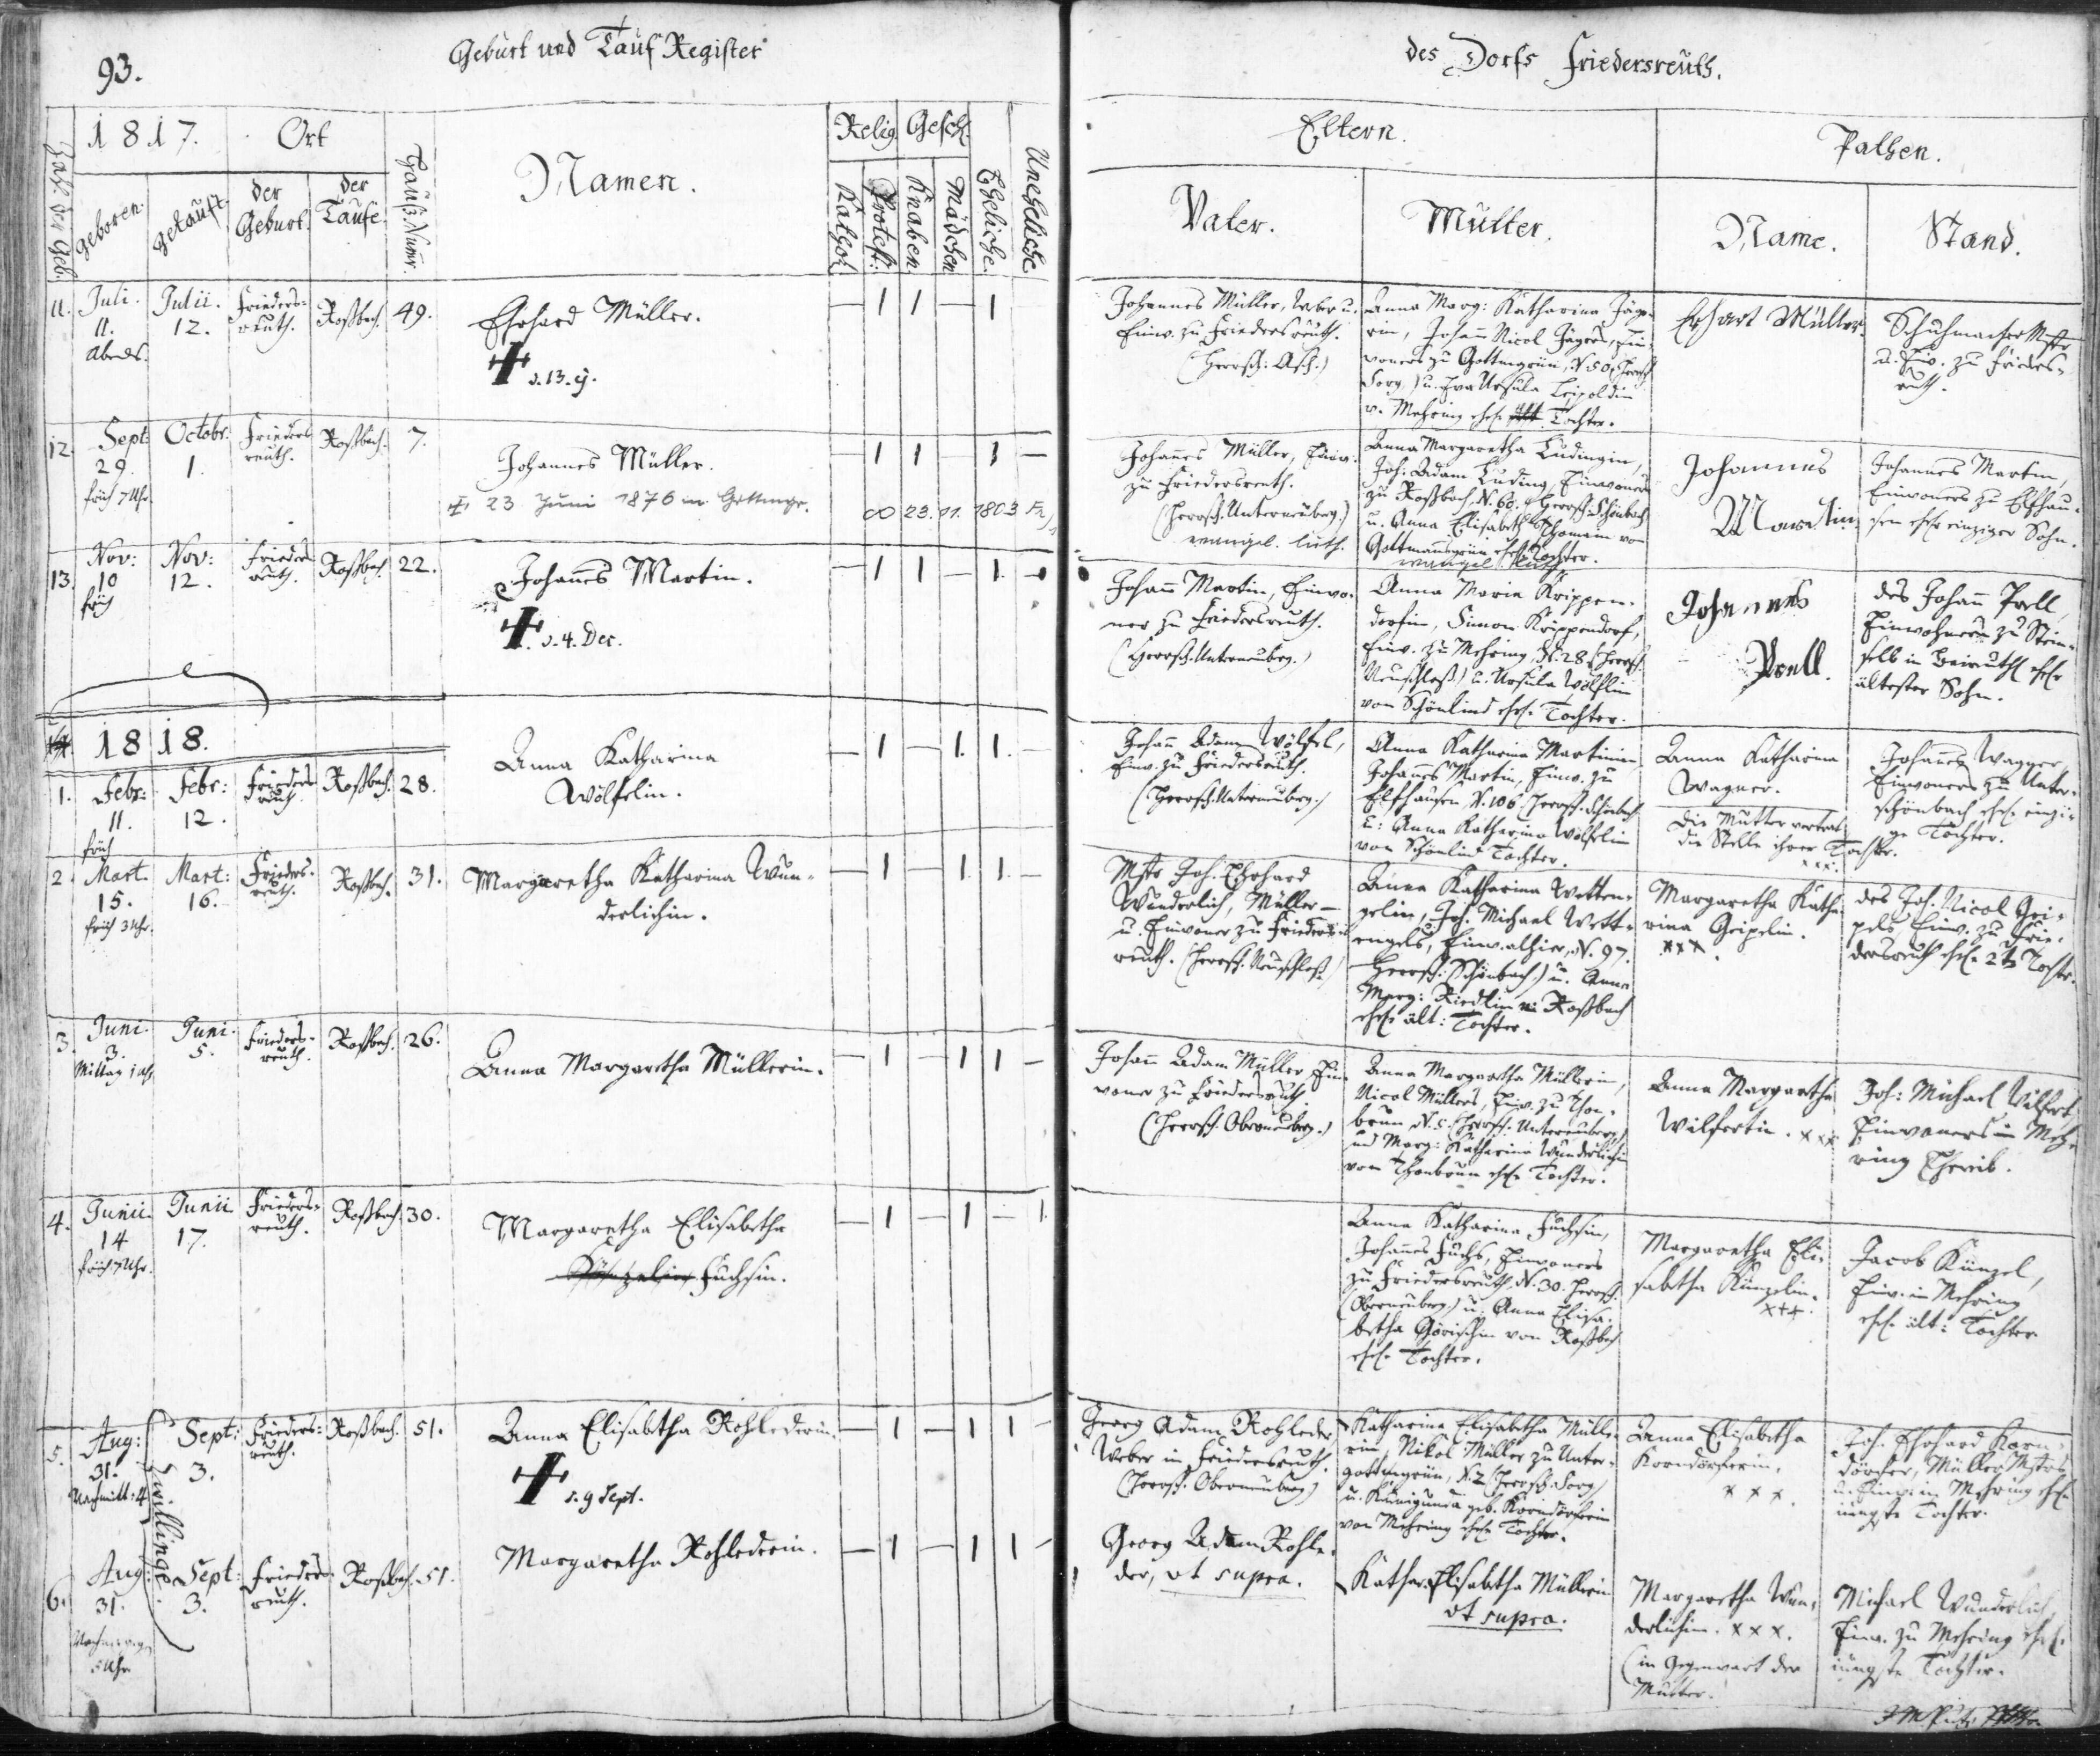 93.
Geburt und Tauf Register
des Dorfs Friedersreuth.
Zahl der Geb.
1817.
Ort
Hauß Numr.
Namen.
Relig.
Gesch.
Eheliche.
Uneheliche
Eltern.
Pathen.
geboren.
getauft.
der Geburt.
der Taufe.
Kathol.
Protest:
Knaben
Mädchen
Vater.
Mutter.
Name.
Stand.
11.
Juli.
11.
abends.
Julii.
12.
Frieders-
reuth.
Roßbach.
49.
Ehrhard Müller.
d. 13. ej.
— 1 1 — 1
Johannes Müller, Weber u.
Einw. zu Friedersreuth.
(Herrsch: Asch.)
Anna Marg: Katharina Jäge-
rin, Johann Nicol Jägers, Ein-
woners zu Gottmgrün, N. 50 (Herrsch
Sorg.) u. Eva Ursula Leipoldin
v. Mehring ehel. Tochter.
Erhart Müller.
Schuhmacher Mstr
u. Einw. zu Frieders-
reuth.
12.
Sept:
29.
früh 7 Uhr.
Octobr:
1.
Frieders
reuth.
Roßbach.
7.
Johannes Müller.
23 Juni 1876 in Gottmgr.
∞ 23. 11. 1803
— 1 1 — 1 —
Johannes Müller, Einw.
zu Friedersreuth.
(Herrsch. Unterneuberg.)
evangel. luth.
Anna Margaretha Ludingin,
Joh: Adam Luding, Einwoners
zu Roßbach, N. 60. (Herrsch. Schönbach
u. Anna Elisabeth Thomain von
Gottmannsgrün ehel. Tochter.
evangel. luth.
Johannes
Martin
Johannes Martin,
Einwoners zu Elfhau-
sen ehel. einziger Sohn.
13.
Nov:
10
früh
Nov:
12.
Frieders
reuth.
Roßbach.
22.
Johannes Martin.
d. 4. Dec.
— 1 1 — 1.
Johann Martin, Einwo-
ner zu Friedersreuth.
(Herrsch. Unterneubrg.)
Anna Maria Krippen-
dorfin, Simon Krippendorf,
Einw. zu Mehring, N. 28 (Herrsch.
Neuschloß) u. Ursula Wölflin
von Schönlind ehel. Tochter.
Johannes
Prell.
des Johann Prell
Einwohners zu Stein-
selb in Beireuth ehel.
ältester Sohn.
1818.
1.
Febr:
11.
früh
Febr:
12.
Frieders
reuth.
Roßbach.
28.
Anna Katharina
Wölfelin.
— 1 — 1. 1. —
Johann Adam Wölfel,
Einw. zu Friedersreuth.
(Herrsch. Unterneuberg.)
Anna Katharina Martinin,
Johannes Martin, Einw. zu
Elfhausen N. 106 (Herrsch. Schönbach
u: Anna Katharina Wölfelin
von Schönlind Tochter.
Anna Katharina
Wagner.
Die Mutter vertrat
die Stelle ihrer Tochter.
xxx.
Johannes Wagner,
Einwoners zu Unter-
schönbach ehel. einzi-
ge Tochter.
2.
Mart.
15.
früh 3 Uhr.
Mart:
16.
Frieders-
reuth.
Roßbach.
31.
Margaretha Katharina Wun-
derlichin.
— 1 — 1. 1. —
Mstr Joh. Ehrhard
Wunderlich, Müller-
u. Einwoner zu Frieders-
reuth. (Herrsch. Neuschloß.)
Anna Katharina Wetten-
gelin, Joh. Michael Wett-
engels, Einw. alhier, N. 97.
Herrsch: Schönbach) u. Anna
Marg: Riedlin in Roßbach
ehel. ält: Tochter.
Margaretha Katha-
rina Geipelin.
xxx.
des Joh. Nicol Gei-
pels, Einw. zu Frie-
dersreuth ehel. 2te Tochter.
3.
Juni.
3.
Mittag 1 Uhr
Juni.
5.
Frieders-
reuth.
Roßbach.
26.
Anna Margaretha Müllerin.
— 1 — 1 1 —
Johann Adam Müller Ein-
woner zu Friedersreuth.
(Herrsch. Oberneuberg.)
Anna Margaretha Müllerin,
Nicol Müllers, Einw. zu Thon-
brun N. 5. (Herrsch: Unterneuberg)
und Marg: Katharina Wunderlichin
von Thonbrunn ehel. Tochter.
Anna Margaretha
Wilfertin. xxx
Joh: Michael Wilfert,
Einwoners in Meh-
ring Eheweib.
4.
Junii.
14
früh 7 Uhr.
Junii
17.
Frieders-
reuth.
Roßbach.
30.
Margaretha Elisabetha
Künzelin Fuchsin.
— 1 — 1 — 1.
Anna Katharina Fuchsin,
Johannes Fuchs, Einwoners
zu Friedersreuth, N. 30. Herrsch.
(Oberneuberg) u. Anna Elisa-
betha Görischin von Roßbach
ehel. Tochter.
Margaretha Eli-
sabetha Künzelin.
xxx.
Jacob Künzel,
Einw. in Mehring
ehel. ält: Tochter.
5.
Aug:
31.
Nachmitt: 4
Zwillinge.
Sept:
3.
Frieders-
reuth.
Roßbach.
51.
Anna Elisabetha Rohlederin.
d. 9 Sept.
— 1 — 1 1 —
Georg Adam Rohleder
Weber in Friedersreuth.
(Herrsch. Oberneuberg)
Katharina Elisabetha Mülle-
rin, Nikol Müller zu Unter-
gottmgrün, N. 2 (Herrsch. Sorg)
u. Kunigunda geb. Korndörferin
von Mehring ehel. Tochter.
Anna Elisabetha
Korndörferin.
x x x.
Joh. Ehrhard Korn-
dörfer, Müller Mstrs
u. Einw. in Mehring ehel.
jüngste Tochter.
6.
Aug:
31.
5 Uhr
Sept:
3.
Frieders-
reuth.
Roßbach.
51.
Margaretha Rohlederin.
— 1 — 1 1 —
Georg Adam Rohle-
der, ut supra.
Kathar. Elisabetha Müllerin
ut supra.
Margaretha Wun-
derlichin. x x x.
(in Gegenwart der
Mutter.
Michael Wunderlich
Einw. zu Mehring ehel.
jüngste Tochter.